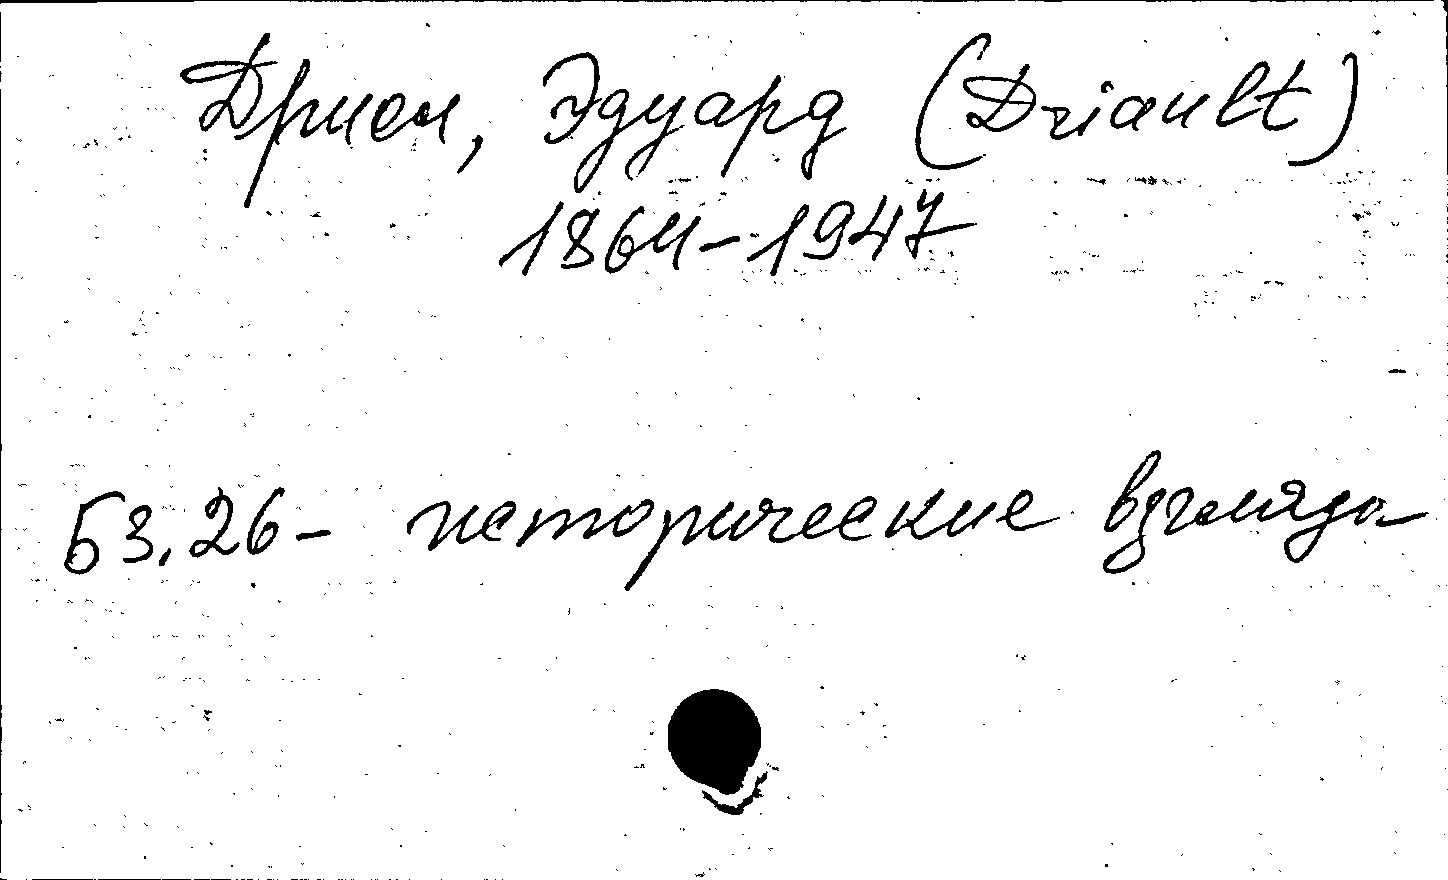 Дриом, Эдуард (Driault)
1864-1947
Б3.26- исторические взгляды